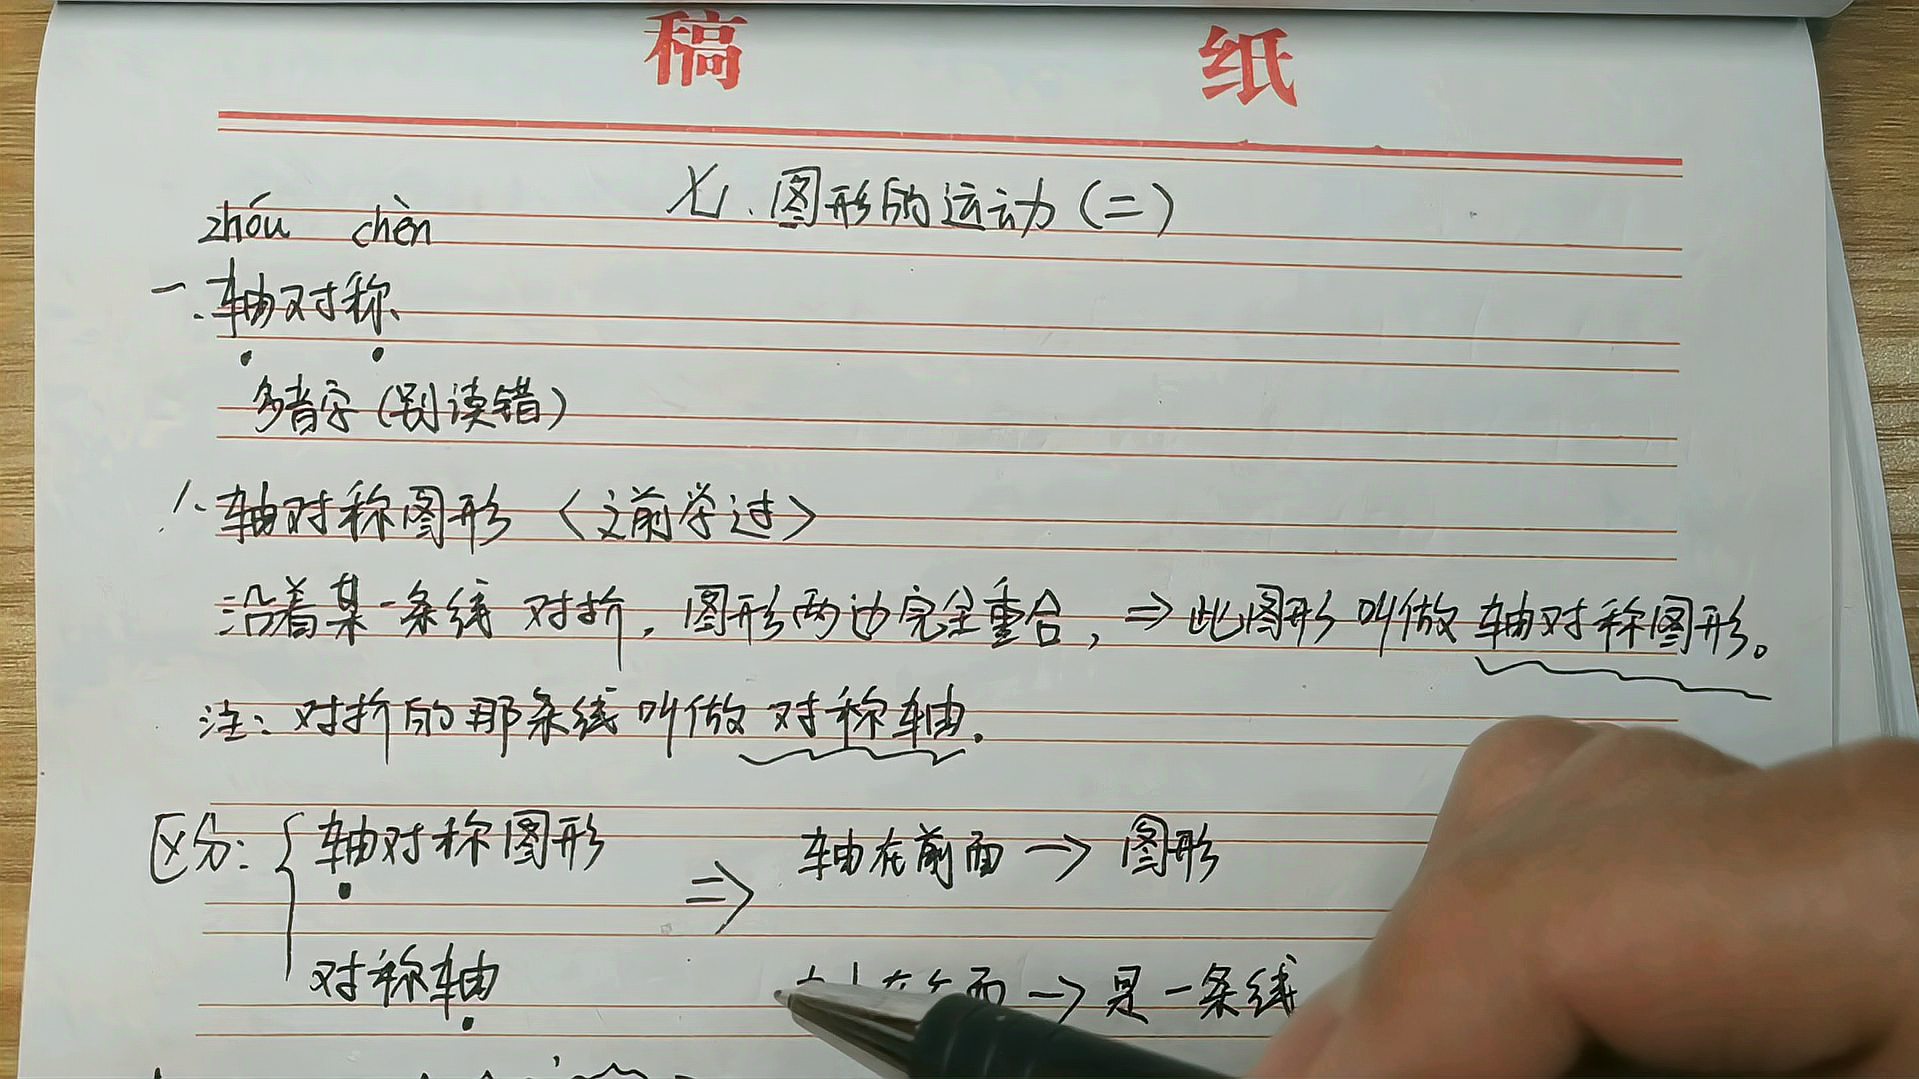 稿 纸
七、图形的运动(二)
zhóu chèn
一、轴对称
多音字(别读错)
1、轴对称图形〈之前学过〉
沿着某一条线 对折,图形两边完全重合,⇒此图形 叫做 轴对称图形。
注:对折的那条线 叫做 对称轴.
区分:{ 轴对称图形 ⇒ 轴在前面 → 图形
对称轴 面 → 是一条线